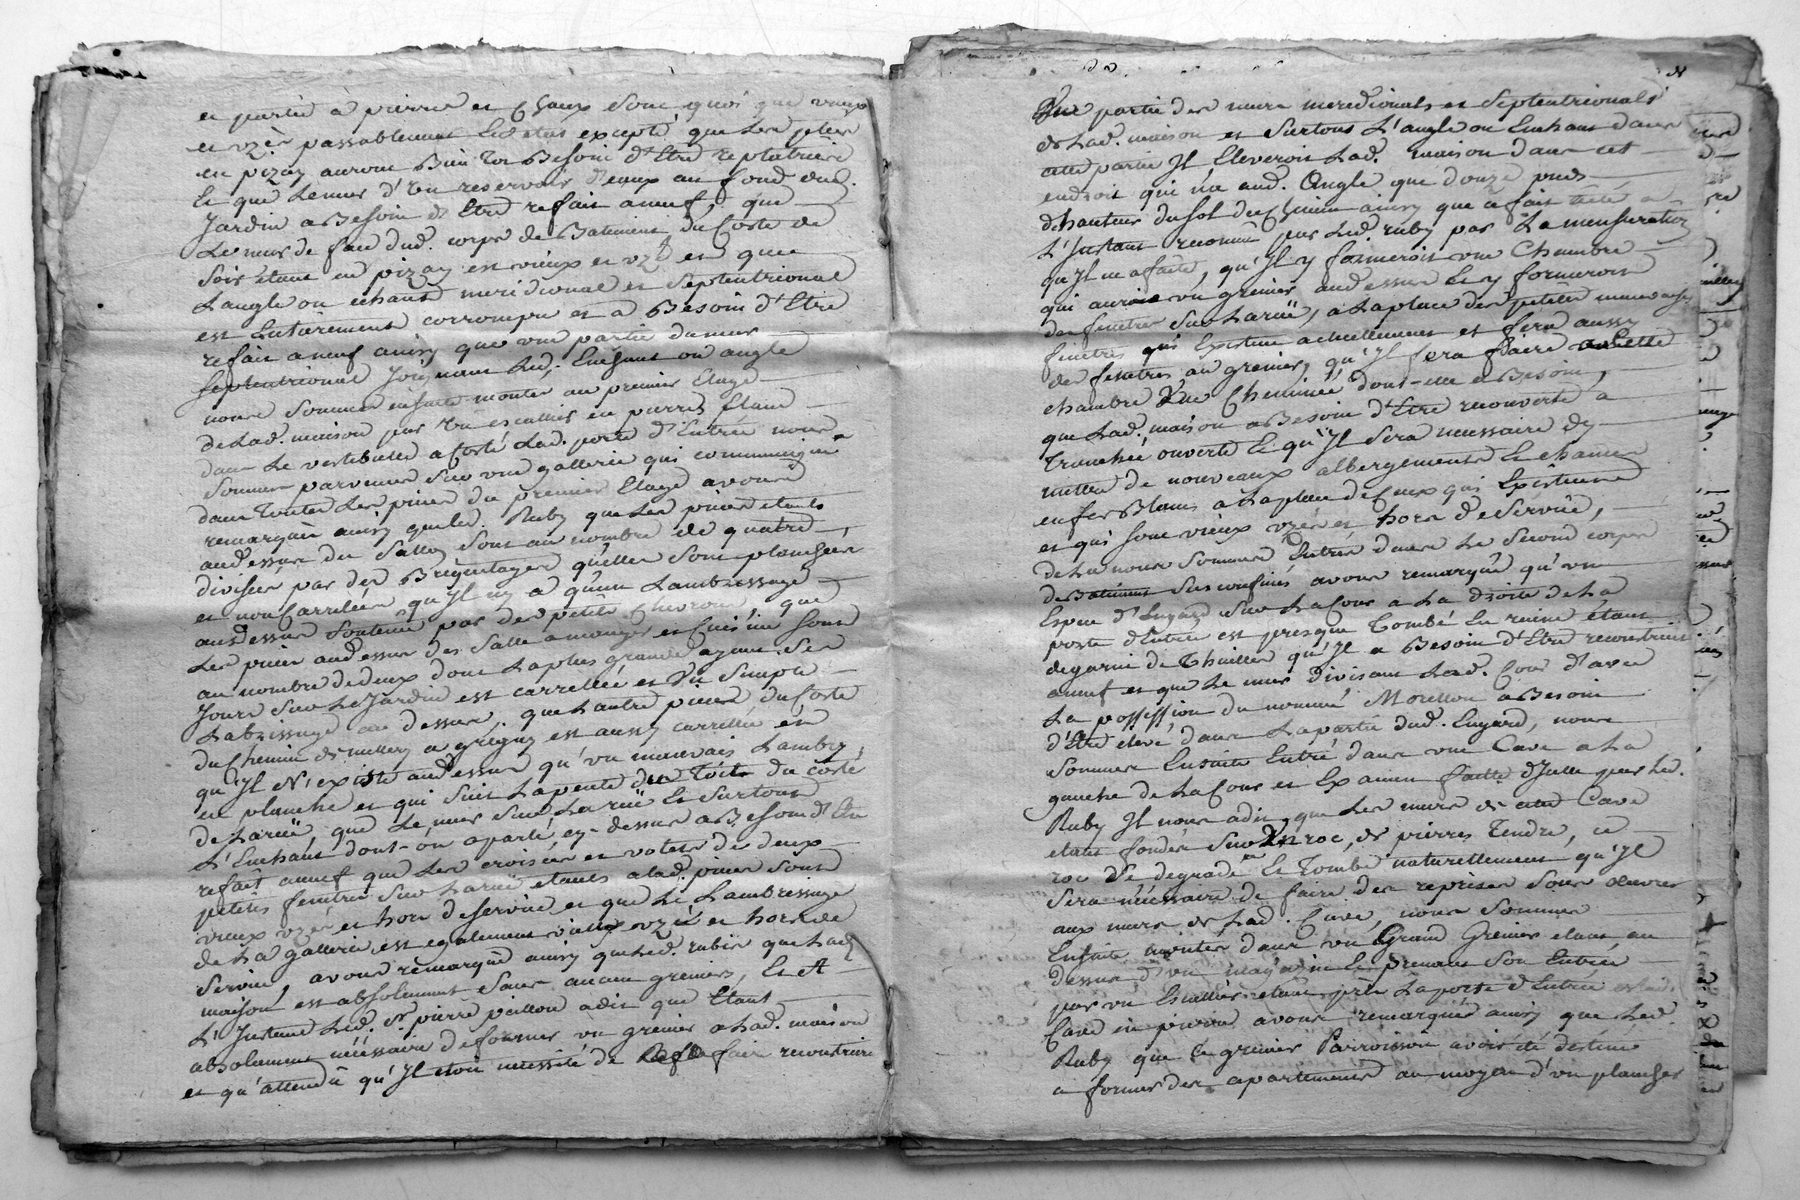 en partie à pierre et chaux sont quoi que vieux
et uzés passablement excepté que les
en pizay auront Bien tot Besoin d'Etre replatrier
Et que Le mur d'un reservoir d'eaux au fond dud.
Jardin a Besoin d'Etre refait aneuf, que
Le mur de face dud. corps de Batiment du Costé de
soir étant en pizay est vieux et uzé et que
L'angle ou echant meridional et Septentrional
est Entierement corrompu et a Besoin d'Etre
refait aneuf ainsy que une partie du mur
septentrional Joignant led. Enchant ou angle
nous sommes ensuite monter au premier Etage
de Lad. maison par un escallier en pierres Etant
dans Le vestibulle a Costé Lad. porte d'Entrée nous
sommes parvenus sur une gallerie qui communique
dans toutes Les pieces du premier Etage avons
remarqué ainsy que led. Ruby que Les pieces etants
audessus du Sallon sont au nombre de quatre
divisées par des Briquetages quelles sont planchéié
et non Carrelées qu'Il ny a qu'un Lambrissage
audessus soutenu par des petits Chevrons que
Les pieces audessus des Salle a manger et Cuisine sont
au nombre de deux dont La plus grande ayant Ses
Jours sur Le Jardin est carrellée et Un Simple
Labrissage au dessus, que L'autre piece du Costé
du Chemin de millery a grigny est aussy carrellée et
qu'Il N'existe audessus qu'un mauvais Lambry
en planche et qui suit La pente du Toits du costé
de La ruë, que Le mur sur La ruë Et surtout
L'Enchant dont-on a parlé cy-dessus a Besoin d'Etre
refait aneuf que Les croisées et volets de deux
petites fenêtres sur La ruë etants a lad. piece sont
vieux uzés et hors de service et que Le Lambrissage
de La gallerie est egalement vieux uzé et hors de
service, avons remarqué ainsy que led. rubis que Lad.
maison est absolument sans aucun greniers, Et A
L'Instant Led. Sr. pierre paillon a dit que Etant
absolument nécéssaire de former un grenier a Lad. maison
et qu'attendû qu'Il etoit necessité de faire reconstruire
Une partie des murs meredionals et Septentrionals
de Lad. maison et surtous L'angle ou Enchant dans
cette partie Il Eleveroit Lad. maison dans cet
endroit qui n'a aud. Angle que douze pieds
d'hauteur du sol du Chemin ainsy que a fait été a
L'Instant reconnû par Led. ruby par La mensuration
qu'Il en a faite, qu'Il y formeroit une Chambre
qui auroit un grenier audessus Et y formeroit
des fenetres sur La ruë, a La place des petites mauvaises
finêtres qui Existent actuellement et fera aussy
des fenêtres au grenier, qu'Il fera faire a cette
chambre Une Cheminée dont-elle a Besoin,
que Lad. maison a Besoin d'Etre recouverte a
Tranchée ouverte Et qu'Il Sera necessaire d'y
mettre de nouveaux albergements Et chaines
en fer Blans a La place de Ceux qui Existent
et qui sont vieux uzés et hors de Service,
de La nous Sommes Entrés dans Le Second corps
de Batiment Susconfiné avons remarqué qu'un
Espece d'Engard sur La Cour a La droite de La
porte d'Entrée est presque Tombé En ruine étant
degarni de Thuilles qu'Il a Besoin d'Etre reconstruit
aneuf et que Le mur divisant Lad. Cour d'avec
La possession du nommé Morellon a Besoin
d'Etre elevé dans La partie dud. Engard, nous
Sommes Ensuite Entré dans une Cave a La
gauche de La Cour et Examen faitte d'Jcelle par Led.
Ruby Il nous a dit que Les murs de cette Cave
etant fondés Sur Un roc, de pierres Tendre, ce
roc se degrade Et Tombe naturellement qu'Il
Sera nécéssaire de faire des reprises Sous oeuvres
aux murs de Lad. Cave, nous Sommes
Ensuite montés dans un Grand Grenier etant au
dessus d'un magazin Et prenant Son Entrée
par un Escallier etant près La porte d'Entrée
Cave en pierre avons remarqués ainsy que Led.
Ruby que Ce grenier Parroissoit avoir été destiné
a former des apartements au moyen d'un plancher